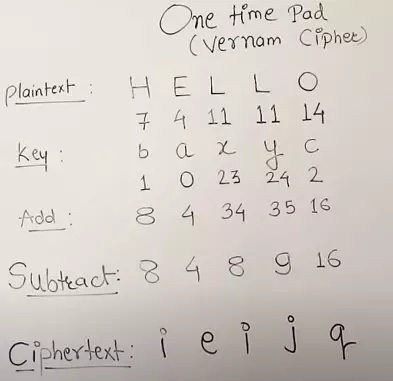 One time Pad
(Vernam Cipher)
Plaintext : H E L L O
7 4 11 11 14
Key : b a x y c
1 0 23 24 2
Add : 8 4 34 35 16
Subtract: 8 4 8 9 16
Ciphertext: i e i j q